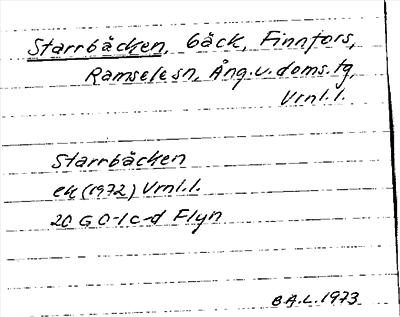 Starrbäcken, bäck, Finnfors,
Ramselesn, Ång.v.doms.tg,
Vrnl.l.
Starrbäcken
ek (1972) Vrnl.l.
20 G 0-1 c-d Flyn
B.Å.L. 1973